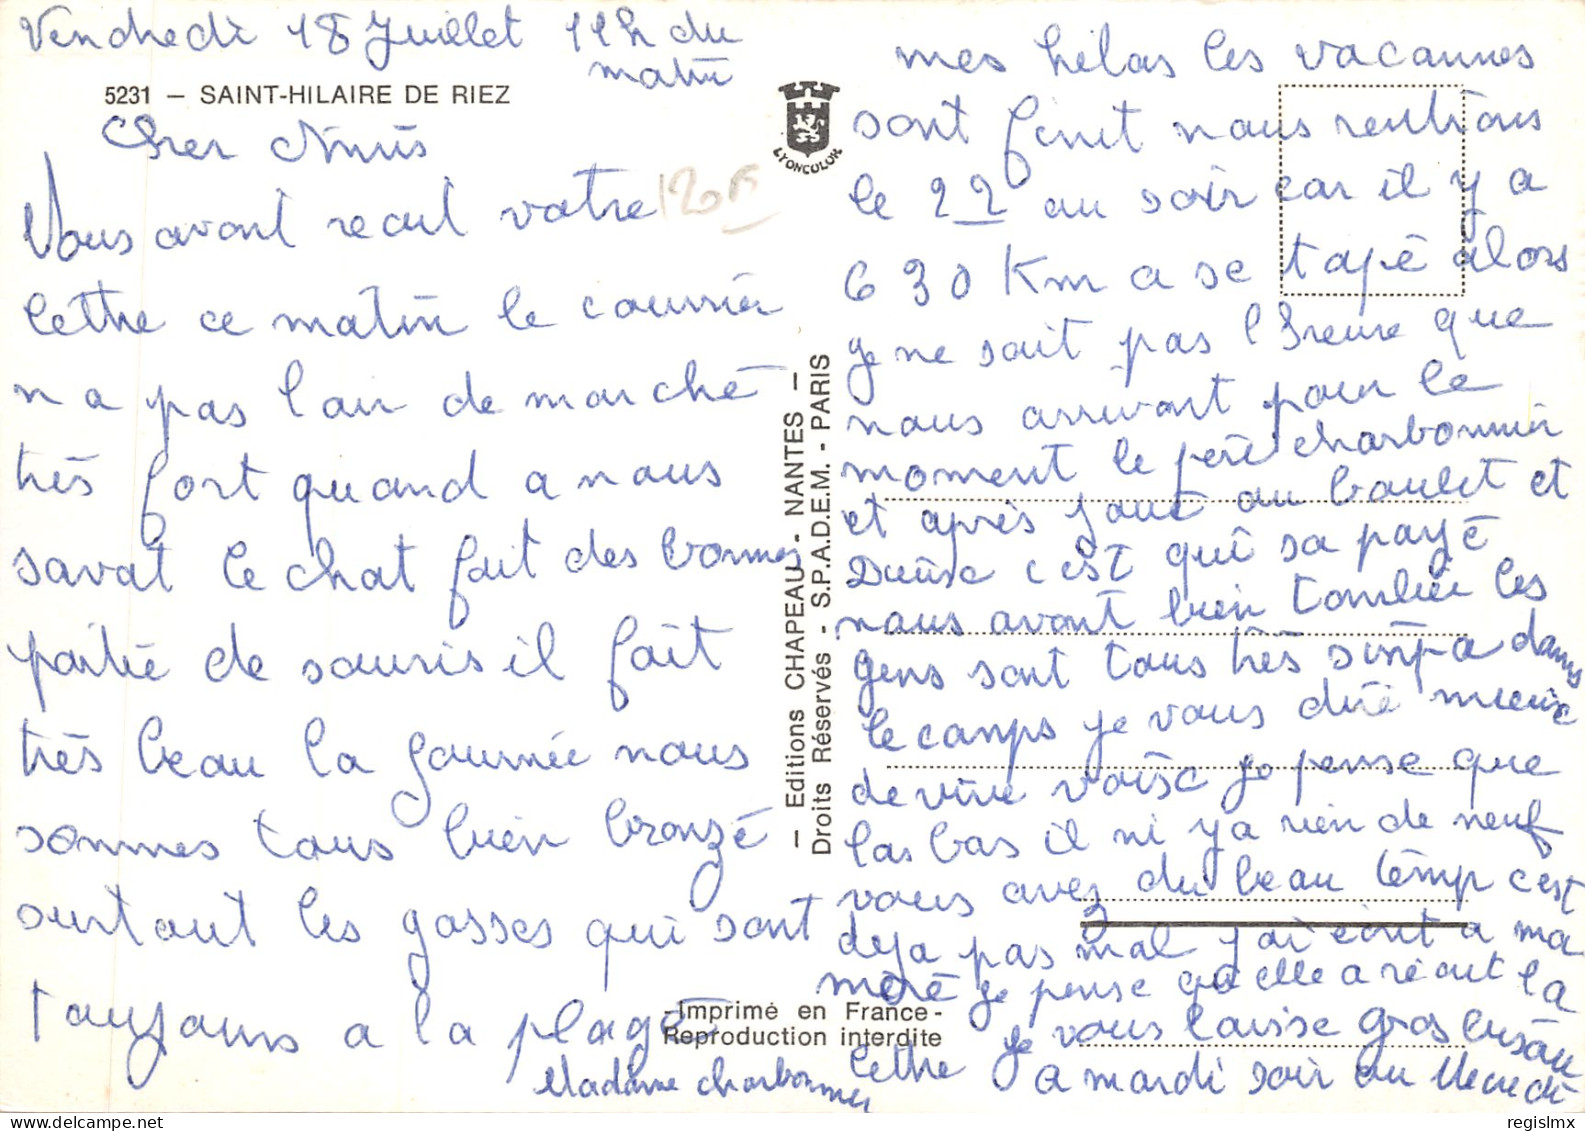 Vendredi 18 Juillet 11h du
matin
5231 — SAINT-HILAIRE DE RIEZ
Cher Amis
Vous avont recut votre
lettre ce matin le courrier
n a pas l air de marché
très fort quand a nous
savat le chat fait des bonnes
partie de souris il fait
très beau la journée nous
sommes tous bien bronzé
surtout les gosses qui sont
toujours a la plage
Madame charbonnier
120 B
LYONCOLOR
— Editions CHAPEAU - NANTES —
Droits Réservés - S.P.A.D.E.M. - PARIS
-Imprimé en France-
Reproduction interdite
mes hélas les vacannes
sont finit nous rentrons
le 22 au soir car il y a
630 Km a se tapé alors
je ne sait pas l heure que
nous arrivont pour le
moment le père charbonnier
et après joue au boulet et
c est qui sa payé
nous avont bien tombée les
gens sont tous très simpa dans
le camps je vous diré mieux
de vive voise je pense que
las bas il ni y a rien de neuf
vous avez du beau temp c est
deja pas mal j ai écrit a ma
meré je pense qu elle a recut la
lettre je vous laisse gros
a mardi soir ou
regislmx